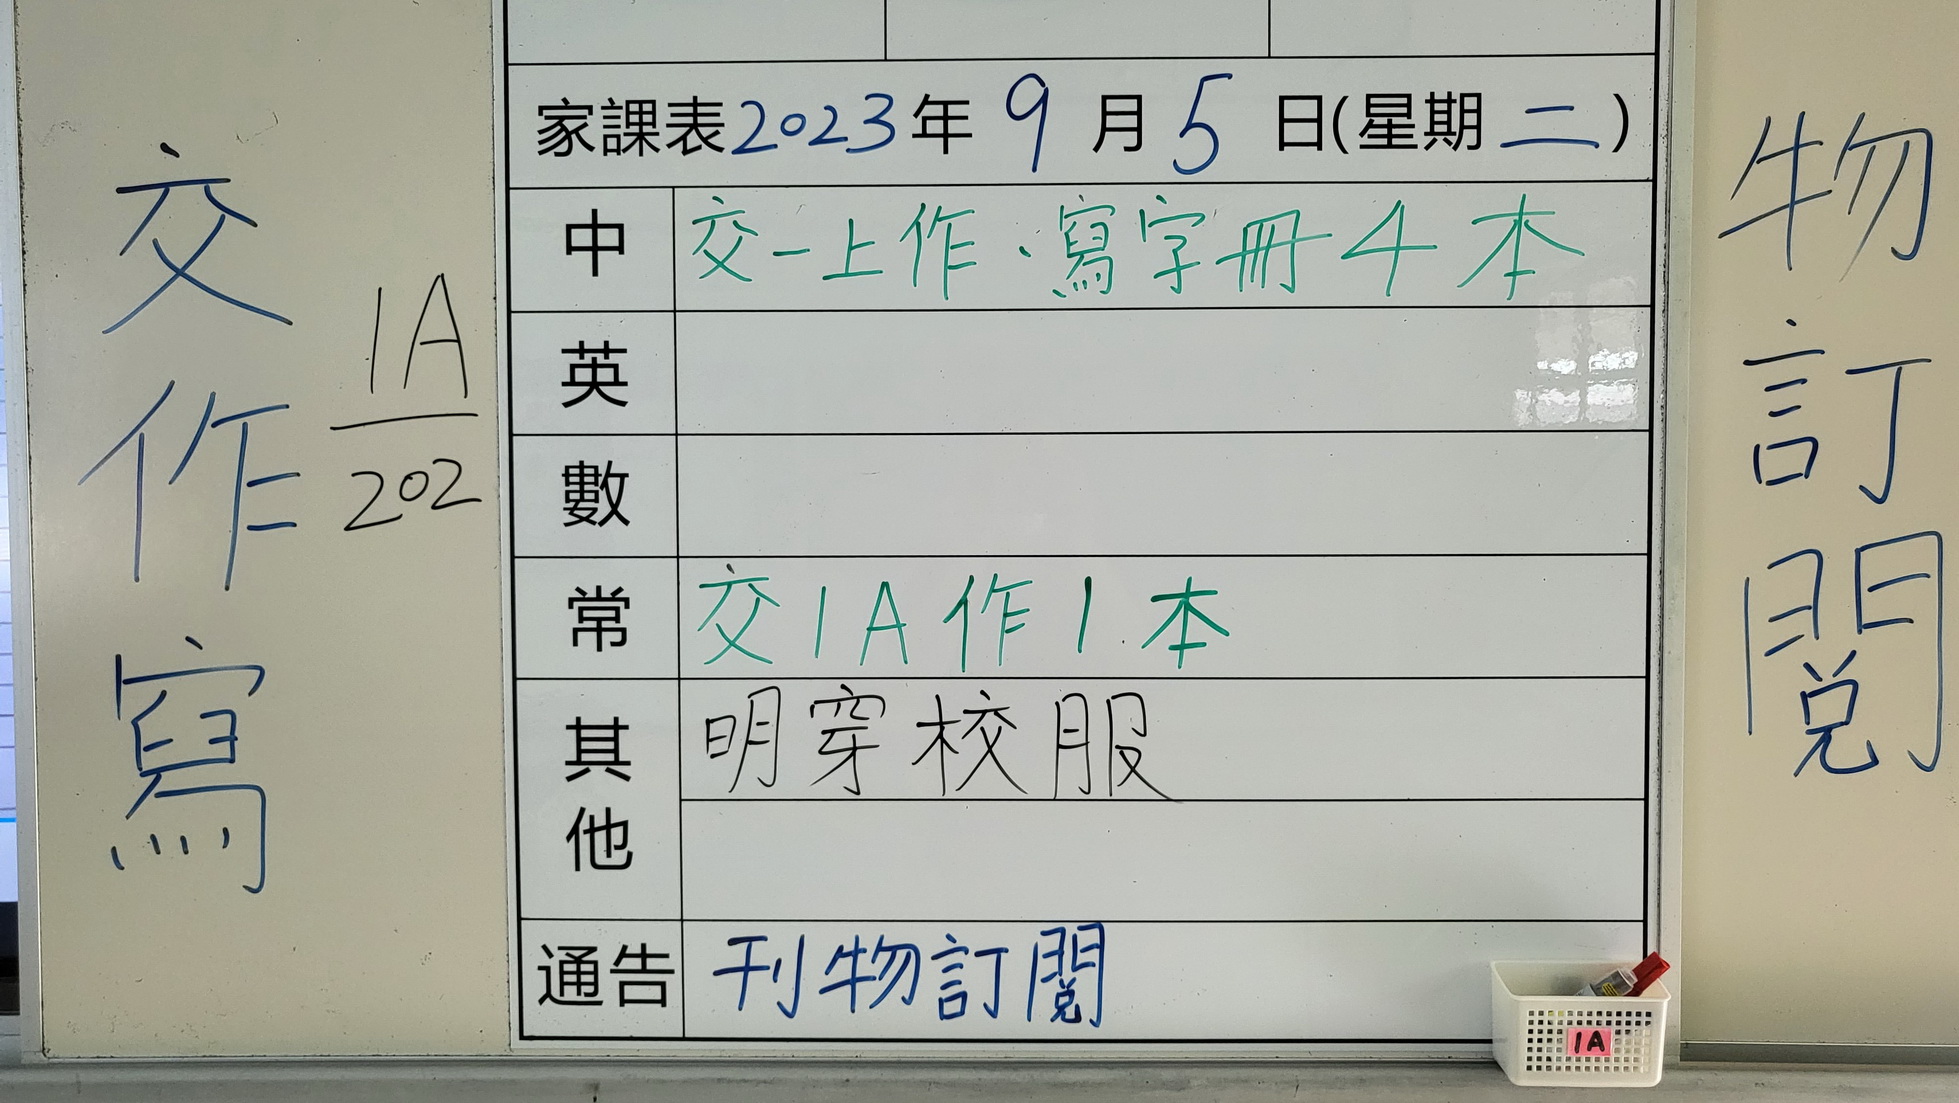 交作寫
1A
202
家課表2023年9月5日(星期二)
中 交一上作、寫字冊4本
英
數
常 交1A作1本
其他 明穿校服
通告 刊物訂閱
物訂閱
1A